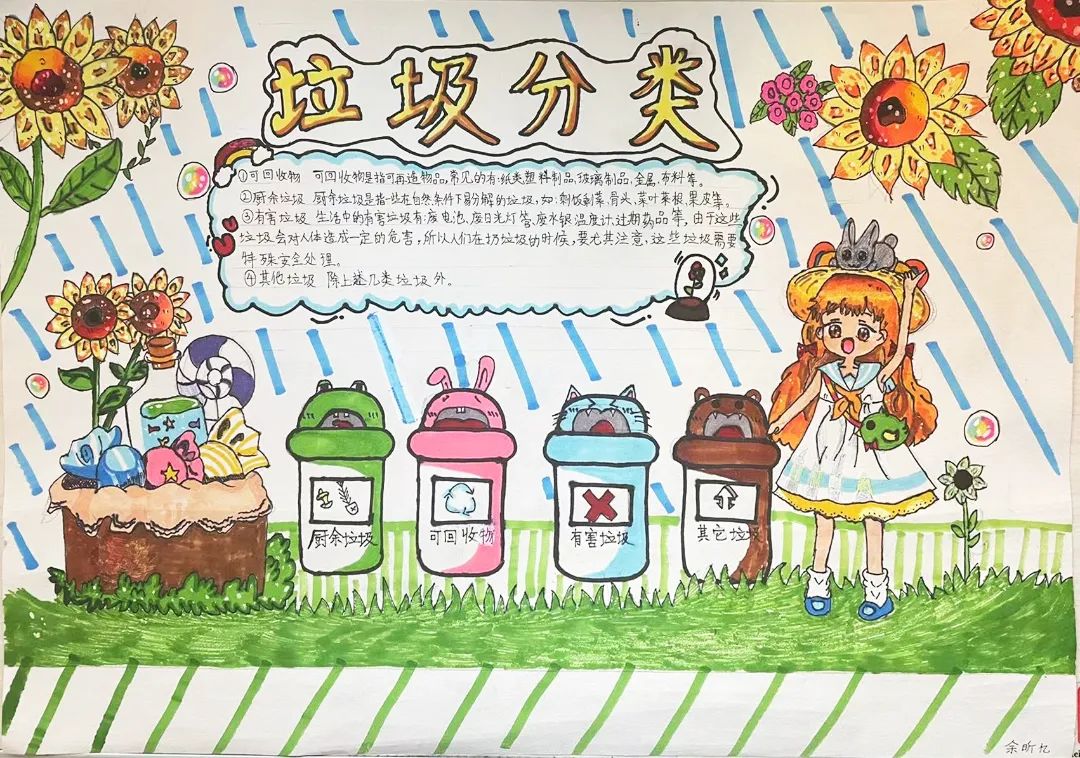 垃圾分类
①可回收物 可回收物是指可再造物品,常见的有:纸类塑料制品,玻璃制品,金属,布料等。
②厨余垃圾 厨余垃圾是指一些在自然条件下易分解的垃圾,如:剩饭剩菜,骨头,菜叶菜根,果皮等。
③有害垃圾 生活中的有害垃圾有:废电池、废日光灯管、废水银温度计、过期药品等,由于这些
垃圾会对人体造成一定的危害,所以人们在扔垃圾的时候,要尤其注意,这些垃圾需要
特殊安全处理。
④其他垃圾 除上述几类垃圾外。
厨余垃圾
可回收物
有害垃圾
其它垃圾
余昕忆